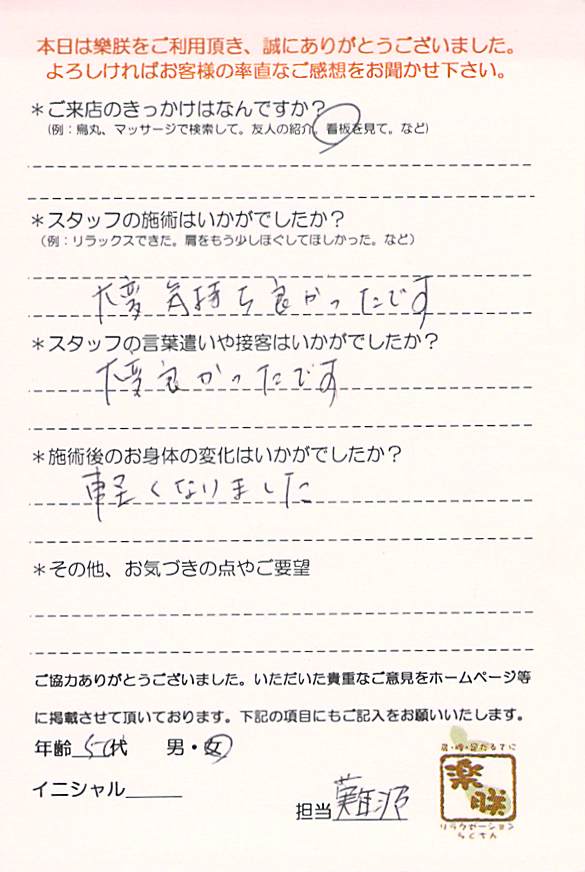 本日は樂朕をご利用頂き、誠にありがとうございました。
よろしければお客様の率直なご感想をお聞かせ下さい。
＊ご来店のきっかけはなんですか？
(例：烏丸、マッサージで検索して。友人の紹介。看板を見て。など)
＊スタッフの施術はいかがでしたか？
(例：リラックスできた。肩をもう少しほぐしてほしかった。など)
大変気持ち良かったです
＊スタッフの言葉遣いや接客はいかがでしたか？
大変良かったです
＊施術後のお身体の変化はいかがでしたか？
軽くなりました
＊その他、お気づきの点やご要望
ご協力ありがとうございました。いただいた貴重なご意見をホームページ等
に掲載させて頂いております。下記の項目にもご記入をお願いいたします。
年齢 50代 男・女
イニシャル
担当 難波
楽朕
リラクゼーション
らくちん